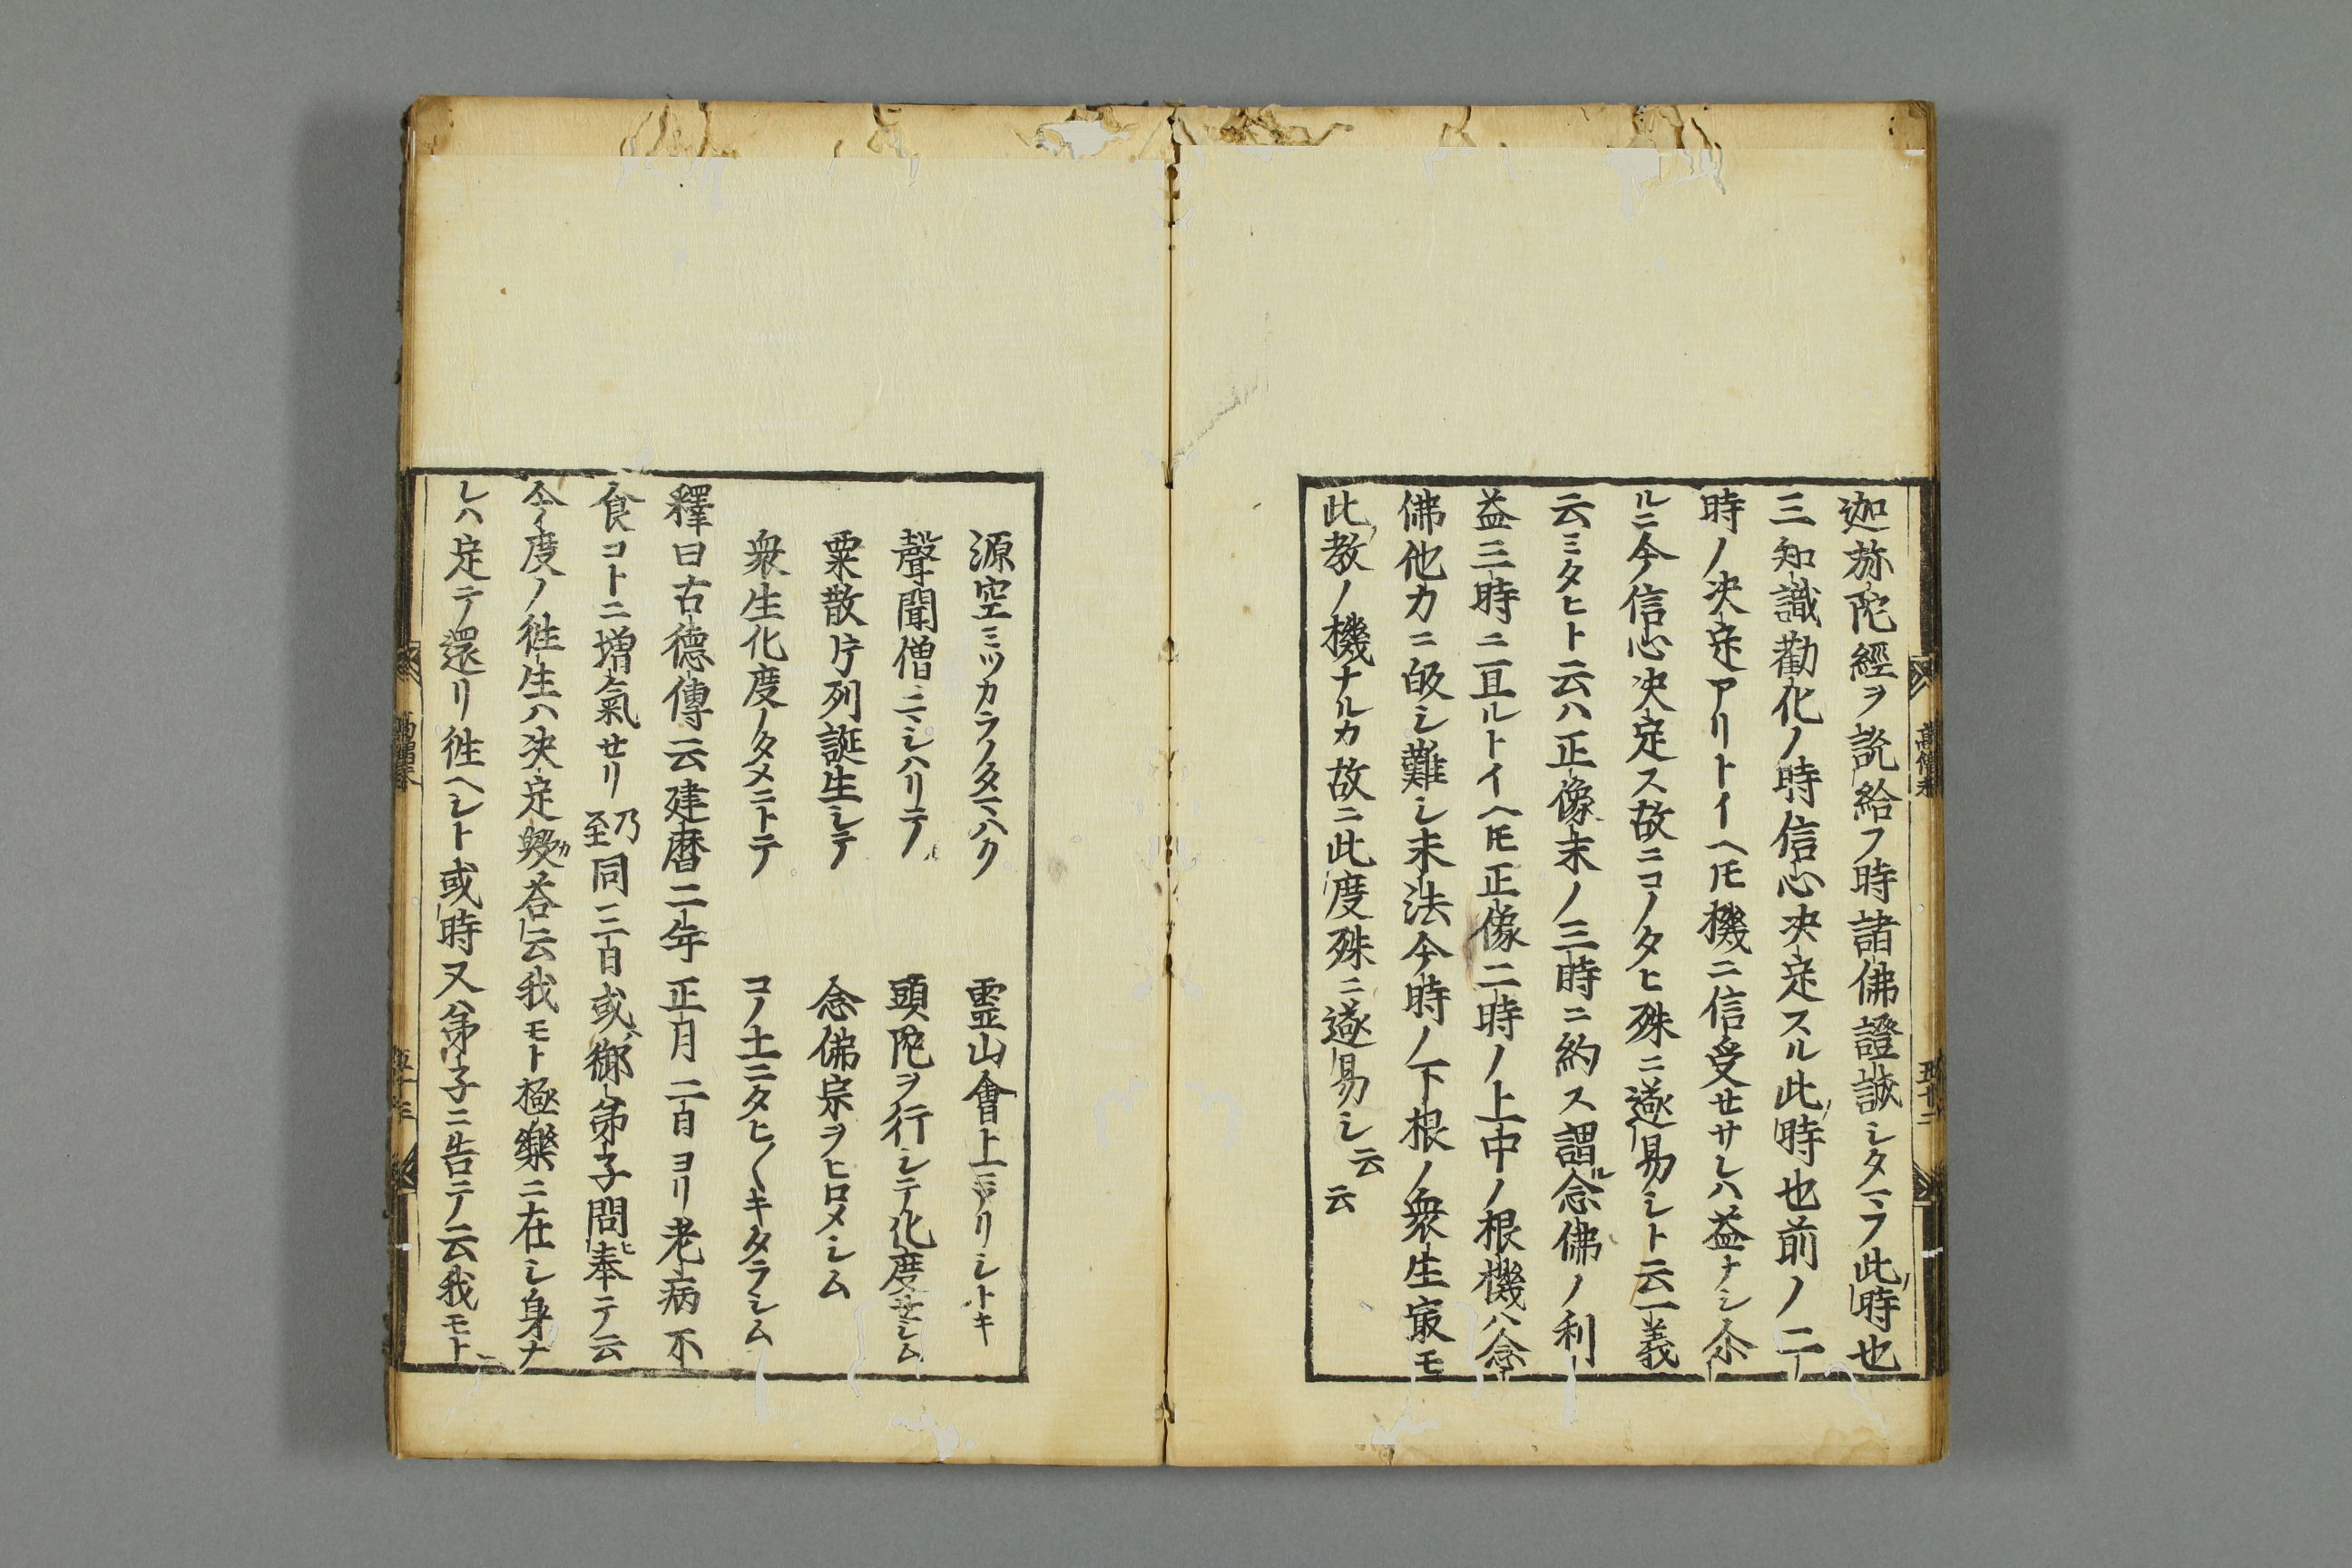 迦弥陀經ヲ説給フ時諸佛證誠シタマフ此時也
三知識勸化ノ時信心决定スル此時也前ノ二
時ノ决定アリトイヘ𪜈機ニ信受セサレハ益ナシ尒
ルニ今信心决定ス故ニコノタヒ殊ニ遂易シト云一義
云ミタヒト云ハ正像末ノ三時ニ約ス謂ル念佛ノ利
益三時ニ亘ルトイヘ𪜈正像二時ノ上中ノ根機ハ念
佛他力ニ皈シ難シ末法今時ノ下根ノ衆生㝡モ
此教ノ機ナルカ故ニ此度殊ニ遂易シ云云
源空ミツカラノタマハク 霊山會上ニアリシトキ
聲聞僧ニマシハリテ 頭陀ヲ行シテ化度セシム
粟散片列誕生シテ 念佛宗ヲヒロメシム
衆生化度ノタメニトテ コノ土ニタヒ〱キタラシム
釋曰古德傳云建暦二年正月二日ヨリ老病不
食コトニ増氣セリ乃至同三日或御弟子問ヒ奉テ云
今度ノ徃生ハ决定歟答云我モト極樂ニ在シ身ナ
レハ定テ還リ徃ヘシト或時又ハ弟子ニ告テ云我モト